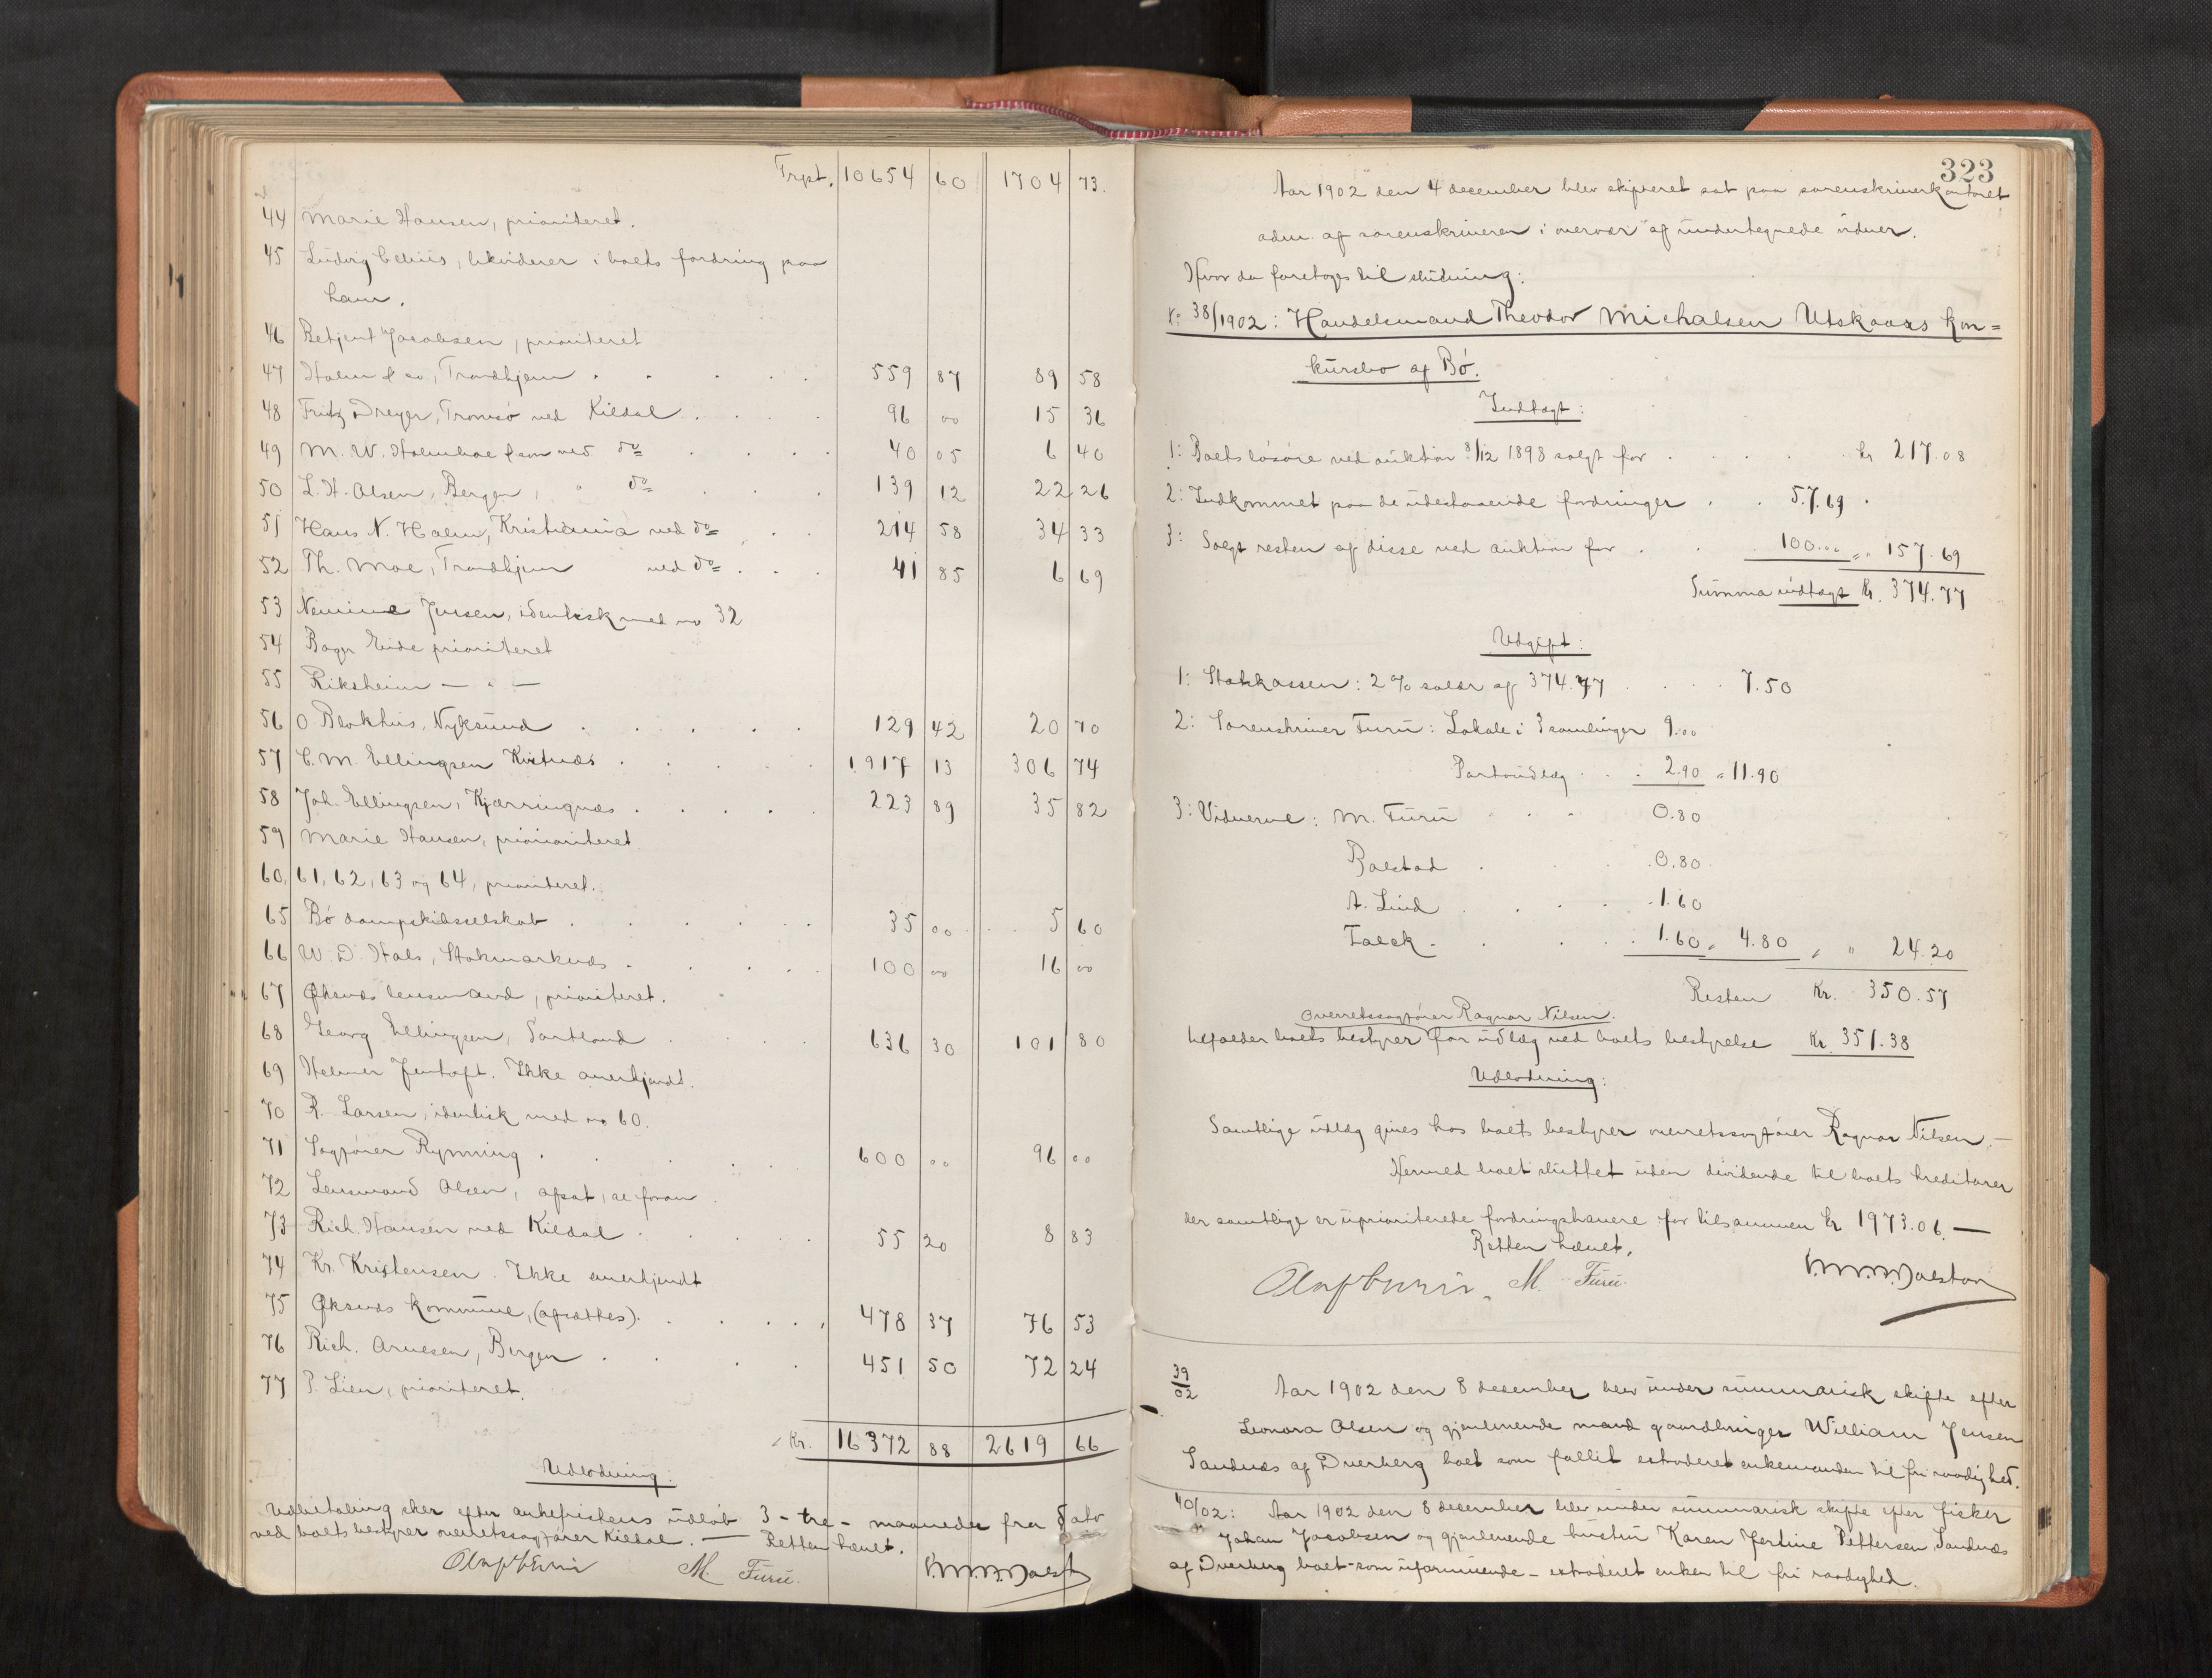 Trpt. 10654 60 1704 73.
44 Marie Hansen, prioriteret.
45 Ludvig Celius, likviderer i boets fordring paa
ham.
46 Betjent Jacobsen, prioriteret
47 Holm & co, Trondhjem . . . . 559 87 89 58
48 Fritz Dreyer, Tromsø ved Kildal . . . 96 00 15 36
49 M. W. Holmboe & søn ved do . . . . 40 05 6 40
50 L. H. Olsen, Bergen, " do . . . 139 12 22 26
51 Hans N. Halm, Kristiania ved do . . 214 58 34 33
52 Th. Moe, Trondhjem ved do . . . 41 85 6 69
53 Jensen, identisk med no 32
54 Bager Eide prioriteret
55 Riksheim — " —
56 O Blokhus, Nyksund . . . . . 129 42 20 70
57 C. M. Ellingsen . . . . . 1917 13 306 74
58 Joh. Ellingsen, Kjærringnæs . . . . 223 89 35 82
59 Marie Hansen, prioriteret
60, 61, 62, 63 og 64, prioriteret.
65 Bø dampskibsselskab . . . . . 35 00 5 60
66 W. D. Hals, Stokmarknæs . . . . 100 00 16 00
67 Øksnes lensmand, prioriteret.
68 Georg Ellingsen, Sortland . . . 636 30 101 80
69 Helmer Jentoft. Ikke anerkjendt.
70 R. Larsen, identisk med no 60.
71 Sagfører Rynning . . . . . 600 00 96 00
72 Lensmand Olsen, afsat, se foran
73 Rich. Hansen ved Kildal . . . . . 55 20 8 83
74 Kr. Kristensen. Ikke anerkjendt
75 Øksnes kommune, (afsættes). . . . . 478 37 76 53
76 Rich. Arnesen, Bergen . . . . 451 50 72 24
77 P. Lien, prioriteret.
Kr. 16372 88 2619 66
Udlodning:
Udbetaling sker efter ankefristens udløb 3 - tre - maaneder fra dato
ved boets bestyrer overretssagfører Kildal. — Retten hævet.
M. Furu.
323
Aar 1902 den 4 december blev skifteret sat paa sorenskriverkontoret
adm. af sorenskriveren i overvær af undertegnede vidner.
Hvor da foretoges til slutning:
No 38/1902: Handelsmand Theodor Michalsen Utskaars kon=
kursbo af Bø.
Indtægt:
1: Boets løsøre ved auktion 8/12 1898 solgt for . . . . . kr 217.08
2: Indkommet paa de udestaaende fordringer . . 57.69 .
3: Solgt resten af disse ved auktion for . . 100.00 " " 157.69
Summa indtægt Kr. 374.77
Udgift:
1: Statskassen: 2 % salær af 374.77 . . . . 7.50
2: Sorenskriver Furu: Lokale i 3 samlinger 9.00
Portoudlæg . . . 2.90 " 11.90
3: Vidnerne: M. Furu . . . 0.80
Bolstad . . 0.80
A. Lind . . . . 1.60
Falck . . . . 1.60 " 4.80 " " 24.20
Resten Kr. 350.57
overretssagfører Ragnar Nilsen.
tilfalder boets bestyrer for udlæg ved boets bestyrelse Kr. 351.38
Udlodning:
Samtlige udlæg gives hos boets bestyrer overretssagfører Ragnar Nilsen. —
Hermed boet sluttet uden dividende til boets kreditorer
der samtlige er uprioriterede fordringshavere for tilsammen kr. 1973.06. —
Retten hævet.
M. Furu.
39/02 Aar 1902 den 8 desember blev under summarisk skifte efter
Leonora Olsen og gjenlevende mand gaardbruger William Jensen
Sandnæs af Dverberg boet som fallit extraderet enkemanden til fri raadighed.
40/02: Aar 1902 den 8 desember blev under summarisk skifte efter fisker
Johan Jacobsen og gjenlevende hustru Karen Jertine Pettersen, Sandnæs
af Dverberg boet - som uformuende - extraderet enken til fri raadighed.